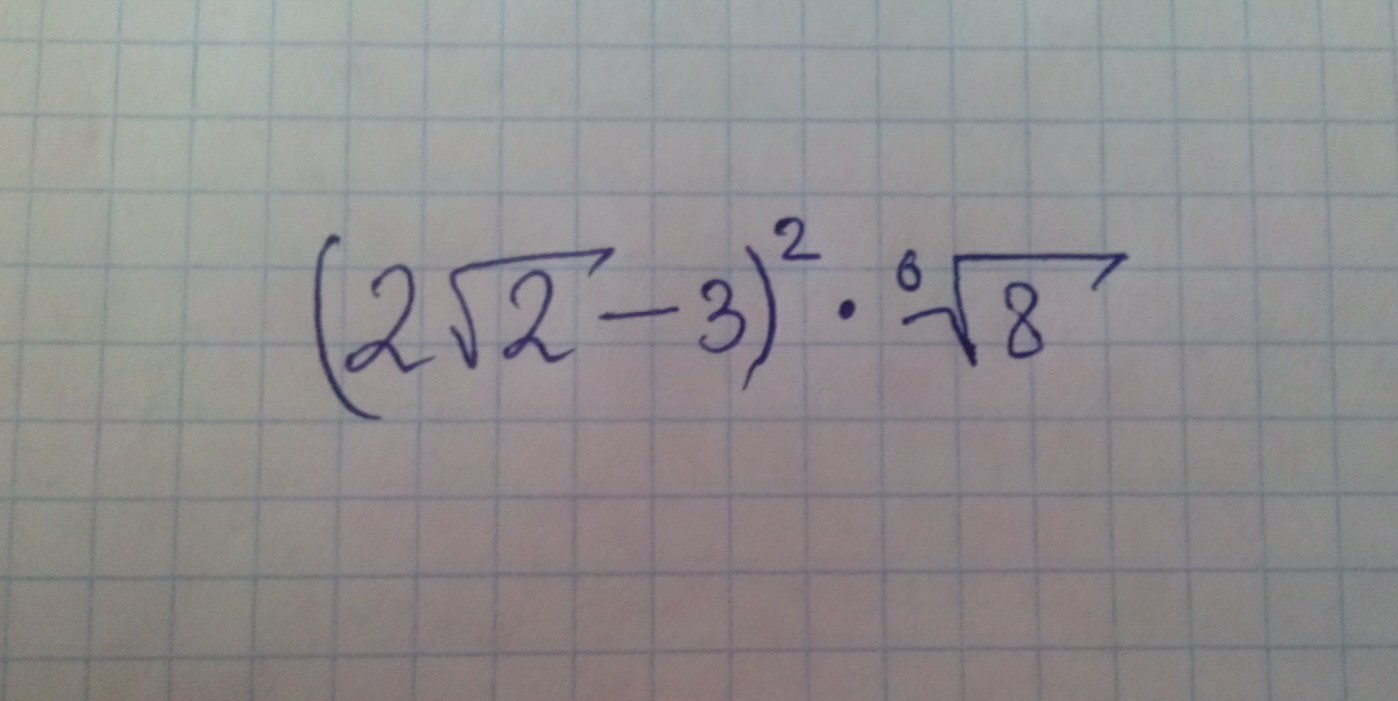 (2√2 − 3)² · ⁶√8